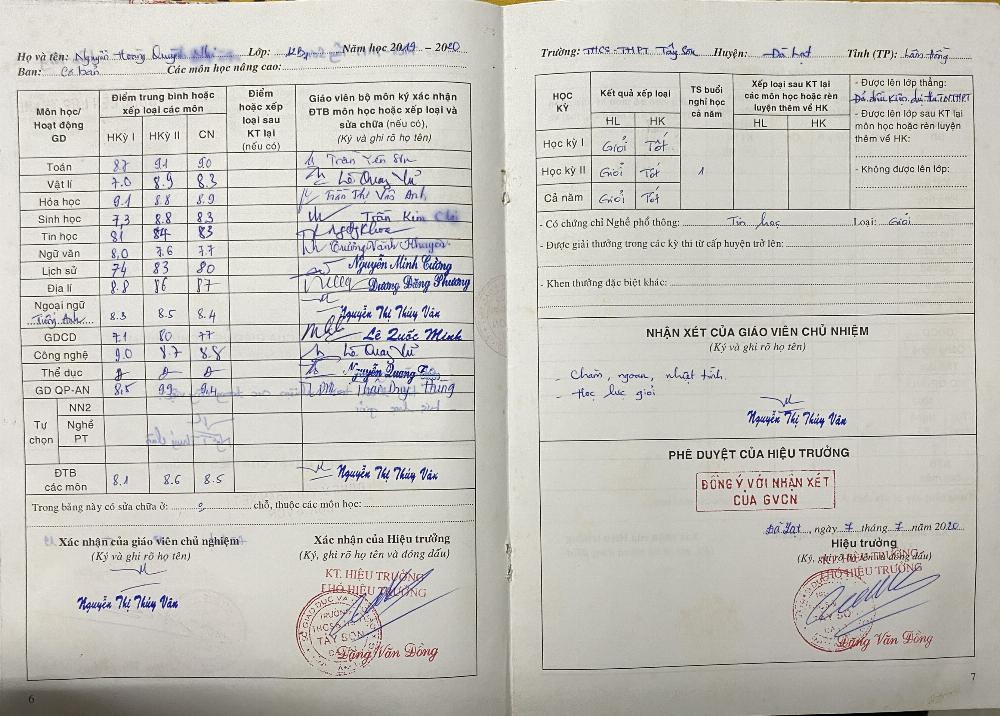 Họ và tên: Nguyễn Hoàng Lớp: Năm học 2019 - 2020
Ban: Cơ bản Các môn học nâng cao:
Môn học/ Hoạt động GD
Điểm trung bình hoặc xếp loại các môn
HKỳ I HKỳ II CN
Điểm hoặc xếp loại sau KT lại (nếu có)
Giáo viên bộ môn ký xác nhận ĐTB môn học hoặc xếp loại và sửa chữa (nếu có),
(Ký và ghi rõ họ tên)
Toán 8.7 9.1 9.0 Trần Yên
Vật lí 7.0 8.9 8.3 Lê Quay Vũ
Hóa học 9.1 8.8 8.9 Trần Thị Vân Anh
Sinh học 7,3 8.8 8.3 Trần Kim Chi
Tin học 81 84 83 Ngọc Khoa
Ngữ văn 8.0 7.6 7.7 Trương Vành Khuyên
Lịch sử 74 83 80 Nguyễn Minh Cường
Địa lí 8.8 86 87 Dương Đăng Phương
Ngoại ngữ Tiếng Anh 8.3 8.5 8.4 Nguyễn Thị Thúy Vân
GDCD 7.1 80 77 Lê Quốc Minh
Công nghệ 9.0 8.7 8.8 Lê Quay Vũ
Thể dục Đ Đ Đ Nguyễn Quang
GD QP-AN 8.5 9.9 9.4 Thân Duy Hùng
Tự chọn
NN2
Nghề PT
ĐTB các môn 8.1 8.6 8.5 Nguyễn Thị Thúy Vân
Trong bảng này có sửa chữa ở: 0 chỗ, thuộc các môn học:
Xác nhận của giáo viên chủ nghiệm
(Ký và ghi rõ họ tên)
Nguyễn Thị Thúy Vân
Xác nhận của Hiệu trưởng
(Ký, ghi rõ họ tên và đóng dấu)
KT. HIỆU TRƯỞNG
PHÓ HIỆU TRƯỞNG
TRƯỜNG
TÂY SƠN
Đặng Văn Đồng
6
Trường: THCS-THPT Tây Sơn Huyện: Đà Lạt Tỉnh (TP): Lâm Đồng
HỌC KỲ
Kết quả xếp loại
HL HK
TS buổi nghỉ học cả năm
Xếp loại sau KT lại các môn học hoặc rèn luyện thêm về HK
HL HK
Học kỳ I Giỏi Tốt
Học kỳ II Giỏi Tốt 1
Cả năm Giỏi Tốt
- Được lên lớp thẳng:
- Được lên lớp sau KT lại môn học hoặc rèn luyện thêm về HK:
- Không được lên lớp:
- Có chứng chỉ Nghề phổ thông: Tin học Loại: Giỏi
- Được giải thưởng trong các kỳ thi từ cấp huyện trở lên:
- Khen thưởng đặc biệt khác:
NHẬN XÉT CỦA GIÁO VIÊN CHỦ NHIỆM
(Ký và ghi rõ họ tên)
- Chăm, ngoan, nhiệt tình.
- Học lực giỏi
Nguyễn Thị Thúy Vân
PHÊ DUYỆT CỦA HIỆU TRƯỞNG
ĐỒNG Ý VỚI NHẬN XÉT
CỦA GVCN
Đà Lạt, ngày 7 tháng 7 năm 2020
Hiệu trưởng
(Ký, ghi rõ họ tên và đóng dấu)
KT. HIỆU TRƯỞNG
PHÓ HIỆU TRƯỞNG
TÂY SƠN
Đặng Văn Đồng
7